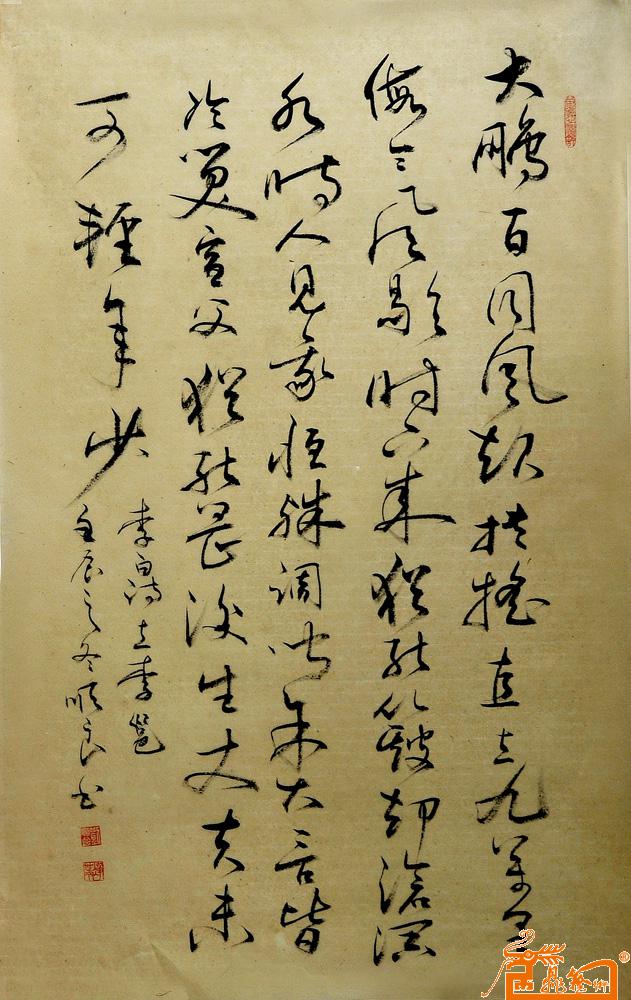 大鵬一日同風起扶搖直上九萬里
假令風歇時下來猶能簸却滄溟
水時人見我恒殊調聞余大言皆
冷笑宣父猶能畏後生丈夫未
可輕年少
李白詩上李邕
壬辰之冬順良书